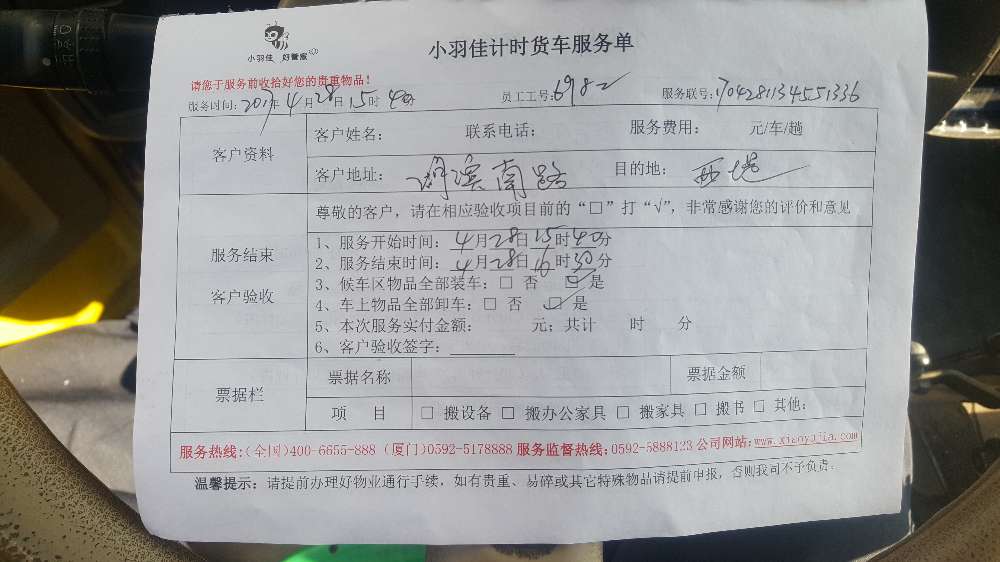 小羽佳 好管家
小羽佳计时货车服务单
请您于服务前收拾好您的贵重物品!
服务时间: 2017年4月28日15时40分 员工工号: 6982 服务联号: 17042811345 51336
客户资料
客户姓名: 联系电话: 服务费用: 元/车/趟
客户地址: 湖滨南路 目的地: 西堤
尊敬的客户,请在相应验收项目前的“□”打“√”,非常感谢您的评价和意见
服务结束
客户验收
1、服务开始时间: 4月28日15时40分
2、服务结束时间: 4月28日16时30分
3、候车区物品全部装车: □ 否 ☑ 是
4、车上物品全部卸车: □ 否 ☑ 是
5、本次服务实付金额: 元; 共计 时 分
6、客户验收签字:
票据栏
票据名称 票据金额
项 目 □ 搬设备 □ 搬办公家具 □ 搬家具 □ 搬书 □ 其他:
服务热线:(全国)400-6655-888 (厦门)0592-5178888 服务监督热线:0592-5888123 公司网站:www.xiaoyujia.com
温馨提示: 请提前办理好物业通行手续,如有贵重、易碎或其它特殊物品请提前申报,否则我司不予负责.